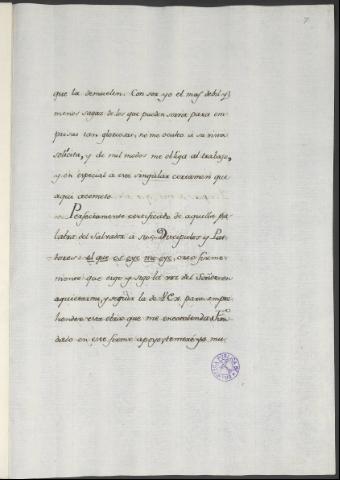 7
que la demuelen. Con ser yo el mas debil y
menos sagaz de los que pueden servir para em-
presas tan gloriosas, no me oculto á su
solicita, y de mil modos me obliga al trabajo,
y en especial a este singular certamen que
aqui acometo
Perfectamente certificado de aquella pa-
labra del Salvador á sus Discipulos y Pas-
tores: el que os oye me oye, creo firme-
mente que oigo y sigo la voz del Señor en
y seguir la de V.Ex. para empre-
hender esta obra que me encomienda. Fun-
dado en este firme apoyo temeré yo mu-